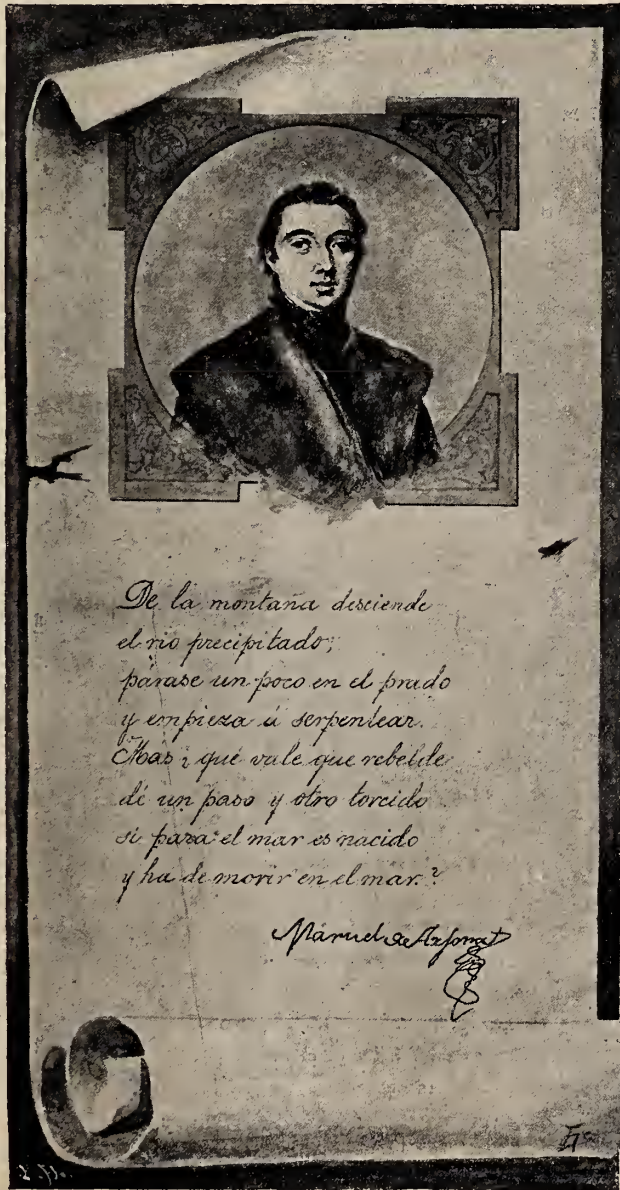 De la montaña desciende
el rio precipitado;
párase un poco en el prado
y empieza á serpentear.
Mas ¿qué vale que rebelde
dé un paso y otro torcido
si para el mar es nacido
y ha de morir en el mar?
Manuel de